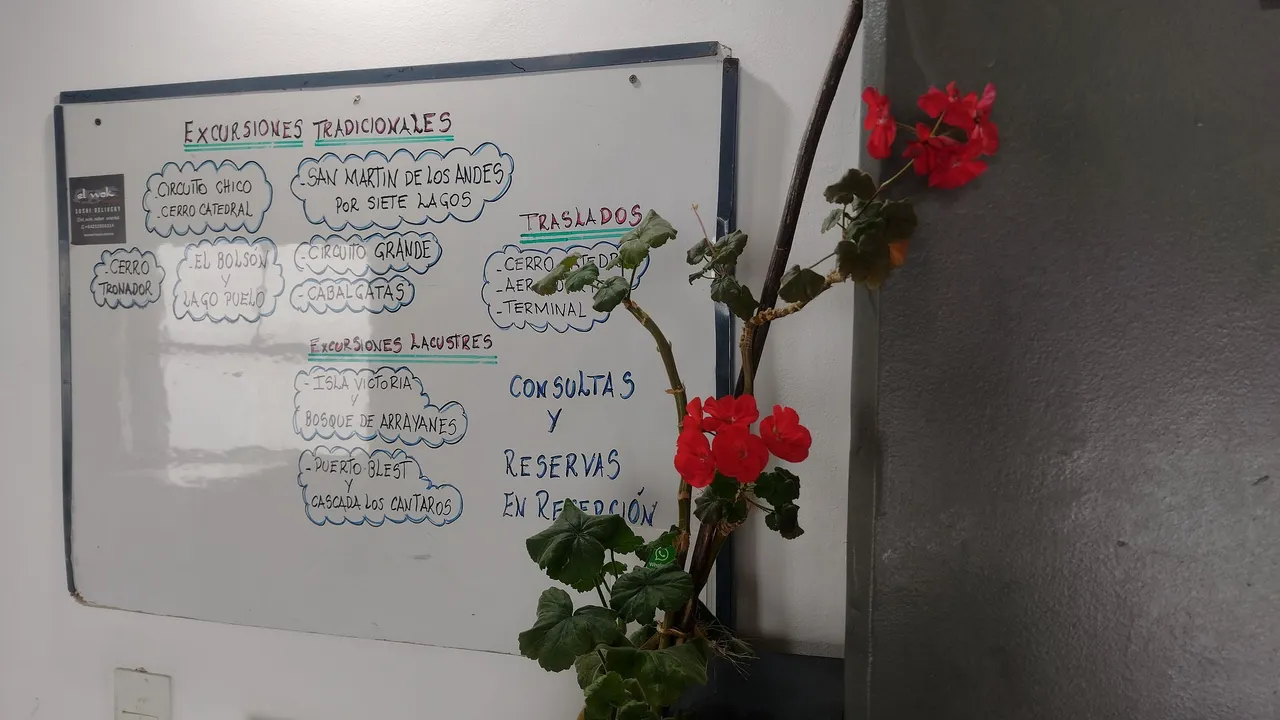 EXCURSIONES TRADICIONALES
-CIRCUITO CHICO
-CERRO CATEDRAL
-SAN MARTIN DE LOS ANDES
POR SIETE LAGOS
-CERRO
TRONADOR
-EL BOLSON
Y
LAGO PUELO
-CIRCUITO GRANDE
-CABALGATAS
TRASLADOS
-CERRO
-TERMINAL
EXCURSIONES LACUSTRES
-ISLA VICTORIA
Y
BOSQUE DE ARRAYANES
-PUERTO BLEST
Y
CASCADA LOS CANTAROS
CONSULTAS
Y
RESERVAS
EN RECEPCIÓN
el wok
SUSHI DELIVERY